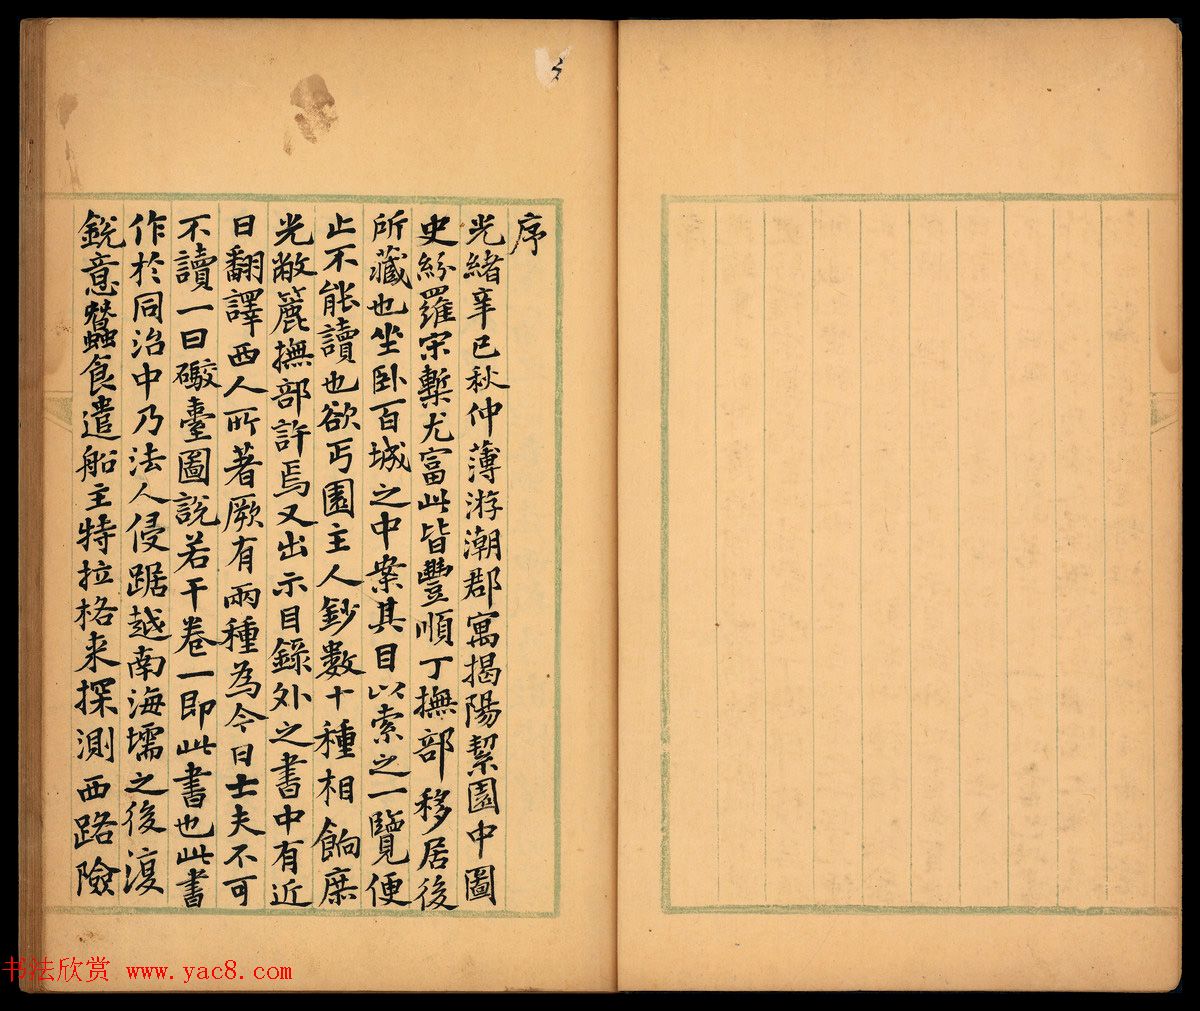 序
光緒辛巳秋仲薄游潮郡寓揭陽絜園中圖
史紛羅宋槧尤富此皆豐順丁撫部移居後
所藏也坐卧百城之中案其目以索之一覽便
止不能讀也欲丐園主人鈔數十種相餉庶
光敝簏撫部許焉又出示目錄外之書中有近
日翻譯西人所著厥有兩種為今日士夫不可
不讀一曰礮臺圖說若干卷一即此書也此書
作於同治中乃法人侵踞越南海壖之後復
銳意蠶食遣船主特拉格来探測西路險
书法欣赏 www.yac8.com